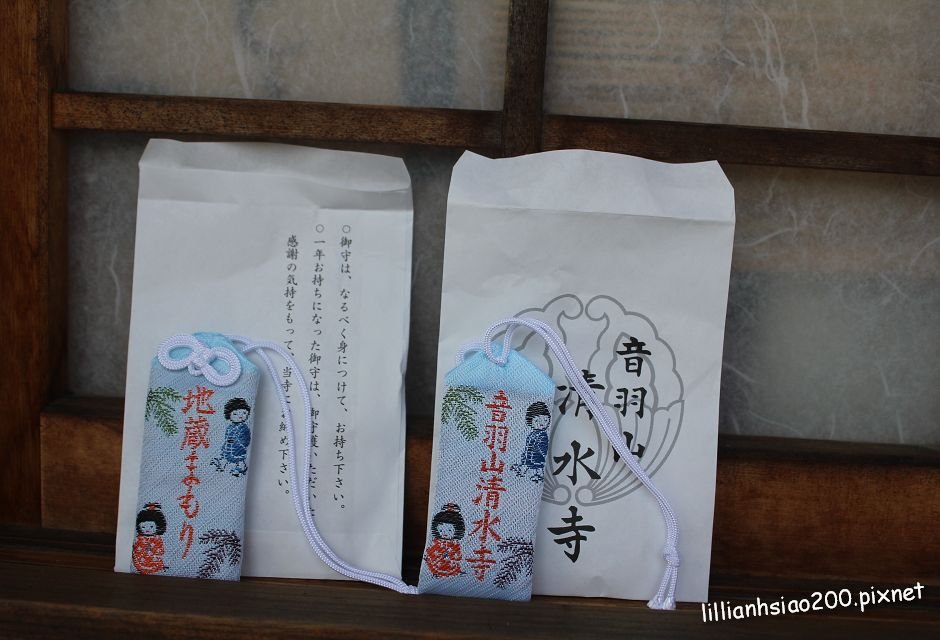 ○御守は、なるべく身につけて、お持ち下さい。
○一年お持ちになった御守は、御守護いただいた
感謝の気持をもって、当寺にお納め下さい。
地蔵まもり
音羽山
清水寺
音羽山清水寺
lillianhsiao200.pixnet